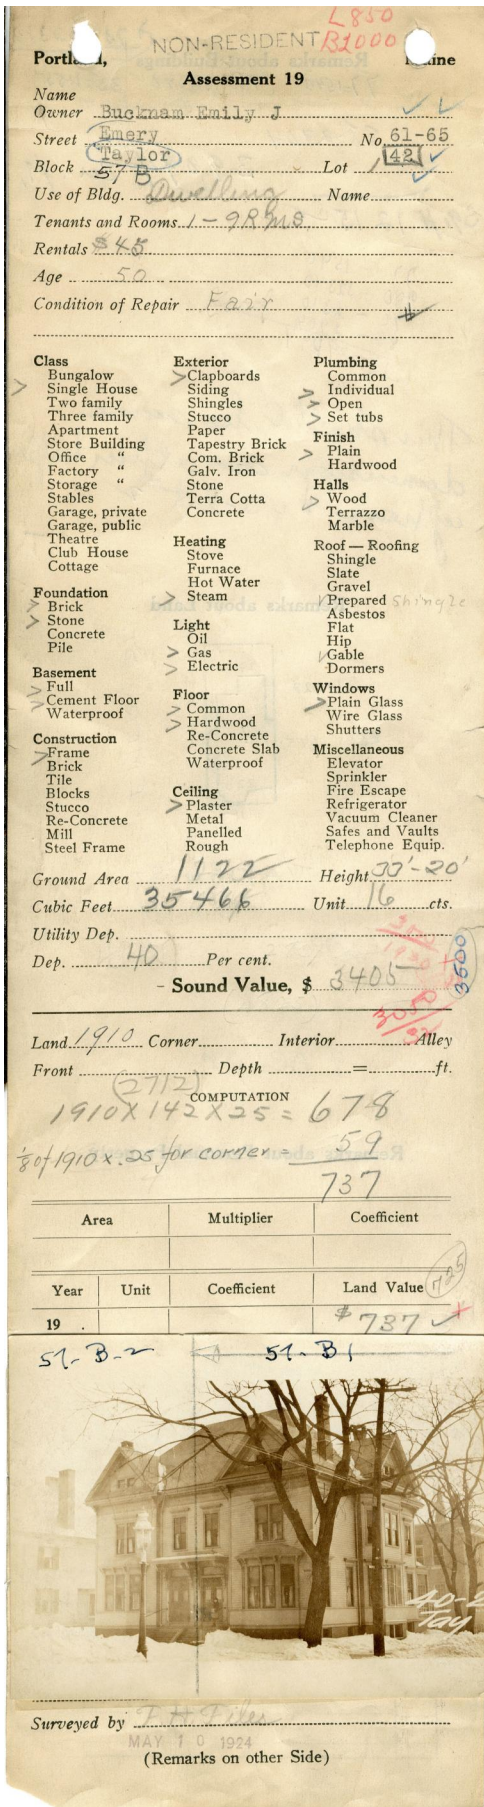 L850
NON-RESIDENT B1000
Portland, Maine
Assessment 19
Name
Owner Bucknam Emily J
Street Emery No 61-65
Taylor 42
Block 57 B Lot 1
Use of Bldg. Dwelling Name
Tenants and Rooms 1-9 RMS.
Rentals $45
Age 50
Condition of Repair Fair
Class
Bungalow
Single House
Two family
Three family
Apartment
Store Building
Office "
Factory "
Storage "
Stables
Garage, private
Garage, public
Theatre
Club House
Cottage
Foundation
Brick
Stone
Concrete
Pile
Basement
Full
Cement Floor
Waterproof
Construction
Frame
Brick
Tile
Blocks
Stucco
Re-Concrete
Mill
Steel Frame
Exterior
Clapboards
Siding
Shingles
Stucco
Paper
Tapestry Brick
Com. Brick
Galv. Iron
Stone
Terra Cotta
Concrete
Heating
Stove
Furnace
Hot Water
Steam
Light
Oil
Gas
Electric
Floor
Common
Hardwood
Re-Concrete
Concrete Slab
Waterproof
Ceiling
Plaster
Metal
Panelled
Rough
Plumbing
Common
Individual
Open
Set tubs
Finish
Plain
Hardwood
Halls
Wood
Terrazzo
Marble
Roof — Roofing
Shingle
Slate
Gravel
Prepared Shingle
Asbestos
Flat
Hip
Gable
Dormers
Windows
Plain Glass
Wire Glass
Shutters
Miscellaneous
Elevator
Sprinkler
Fire Escape
Refrigerator
Vacuum Cleaner
Safes and Vaults
Telephone Equip.
Ground Area 1122 Height 33'-20'
Cubic Feet 35466 Unit 16 cts.
Utility Dep.
Dep. 40 Per cent.
3500
Sound Value, $ 3405
3050
Land 1910 Corner Interior Alley
Front Depth = ft.
(2712)
COMPUTATION
1910 X 142 X 25 = 678
1/8 of 1910 x .25 for corner = 59
737
Area Multiplier Coefficient
725
Year Unit Coefficient Land Value
19 . $ 737
57-B-2 57-B1
Tay
Surveyed by
MAY 10 1924
(Remarks on other Side)